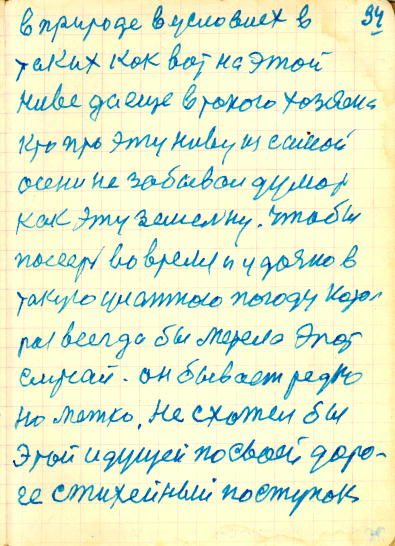 в природе в условиех в 94
таких как вот на этой
ниве да еще в такого хозяена
кто про эту ниву из самой
осени не забывал думал
как эту земелку. чтобы
посеет во время и удачно в
такую погоду
всегда бы мерело этот
случай. он бывает редко
но метко, не схотел бы
этой идущей по своей доро-
ге стихейный поступок